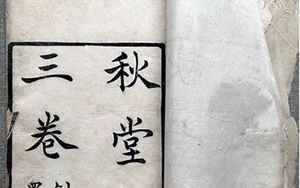 秋堂
三卷